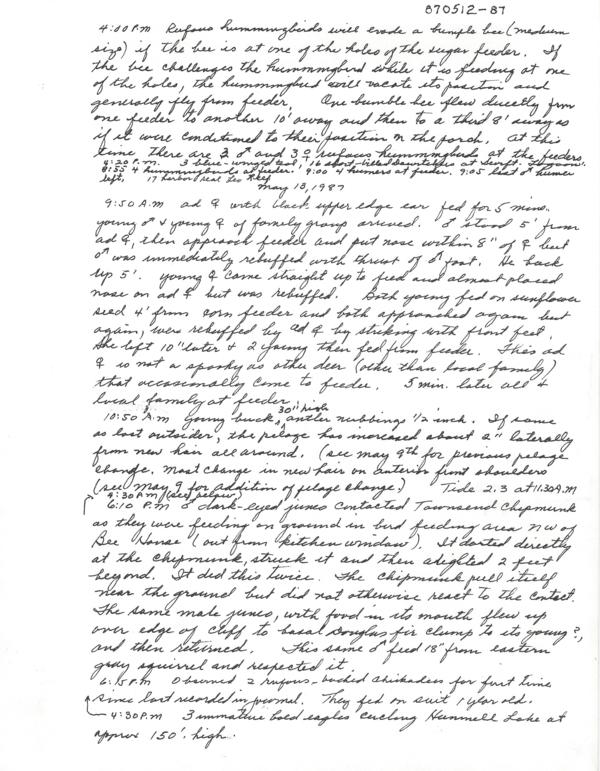 870512-87
4:00 P.M Rufous hummingbirds will evade a bumble bee (medium
size) if the bee is at one of the holes of the sugar feeder. If
the bee challenges the hummingbird while it is feeding at one
of the holes, the hummingbird will vacate its position and
generally fly from feeder. One bumble bee flew directly from
one feeder to another 10' away and then to a third 8' away as
if it were conditioned to their position on the porch. At this
time there are 2 ♂ and 3 ♀ rufous hummingbirds at the feeders.
4:20 P.M. 3 blue-winged teal, 16 short-billed dowitchers at Swift. Lagoon.
8:55 4 hummingbirds at feeder. 9:00 4 hummers at feeder. 9:05 last ♂ hummer
left. 17 harbor seal
May 13, 1987
9:50 A.M ad ♀ with black upper edge ear fed for 5 mins.
young ♂ & young ♀ of family group arrived. ♂ stood 5' from
ad ♀, then approach feeder and put nose within 8" of ♀ but
♂ was immediately rebuffed with thrust of foot. He back
up 5'. young ♀ came straight up to feed and almost placed
nose on ad ♀ but was rebuffed. Both young fed on sunflower
seed 4' from corn feeder and both approached again but
again, were rebuffed by ad ♀ by striking with front feet.
She left 10" later & 2 young then fed from feeder. This ad
♀ is not a spooky as other deer (other than local family)
that occasionally come to feeder. 5 min. later all 4
local family at feeder.
10:50 A.M young buck, 30" high antler nubbings 1/2 inch. If same
as last outsider, the pelage has increased about 2" laterally
from new hair all around. (see May 9th for previous pelage
change. Most change in new hair on anterior front shoulders
(see May 9 for addition of pelage change.) Tide 2.3 at 11:30 A.M
4:30 P.M (see below)
6:10 P.M ♂ dark-eyed junco contacted Townsend Chipmunk
as they were feeding on ground in bird feeding area NW of
Bee House (out from kitchen window). It darted directly
at the chipmunk, struck it and then alighted 2 feet
beyond. It did this twice. The chipmunk pull itself
near the ground but did not otherwise react to the contact.
The same male junco, with food in its mouth flew up
over edge of cliff to basal Douglas fir clump to its young?,
and then returned. This same ♂ feed 18" from eastern
gray squirrel and respected it.
6:15 P.M Observed 2 rufous-backed chickadees for first time
since last recorded in journal. They fed on suit 1 year old.
4:30 P.M 3 immature bald eagles circling Hummell Lake at
approx 150' high.